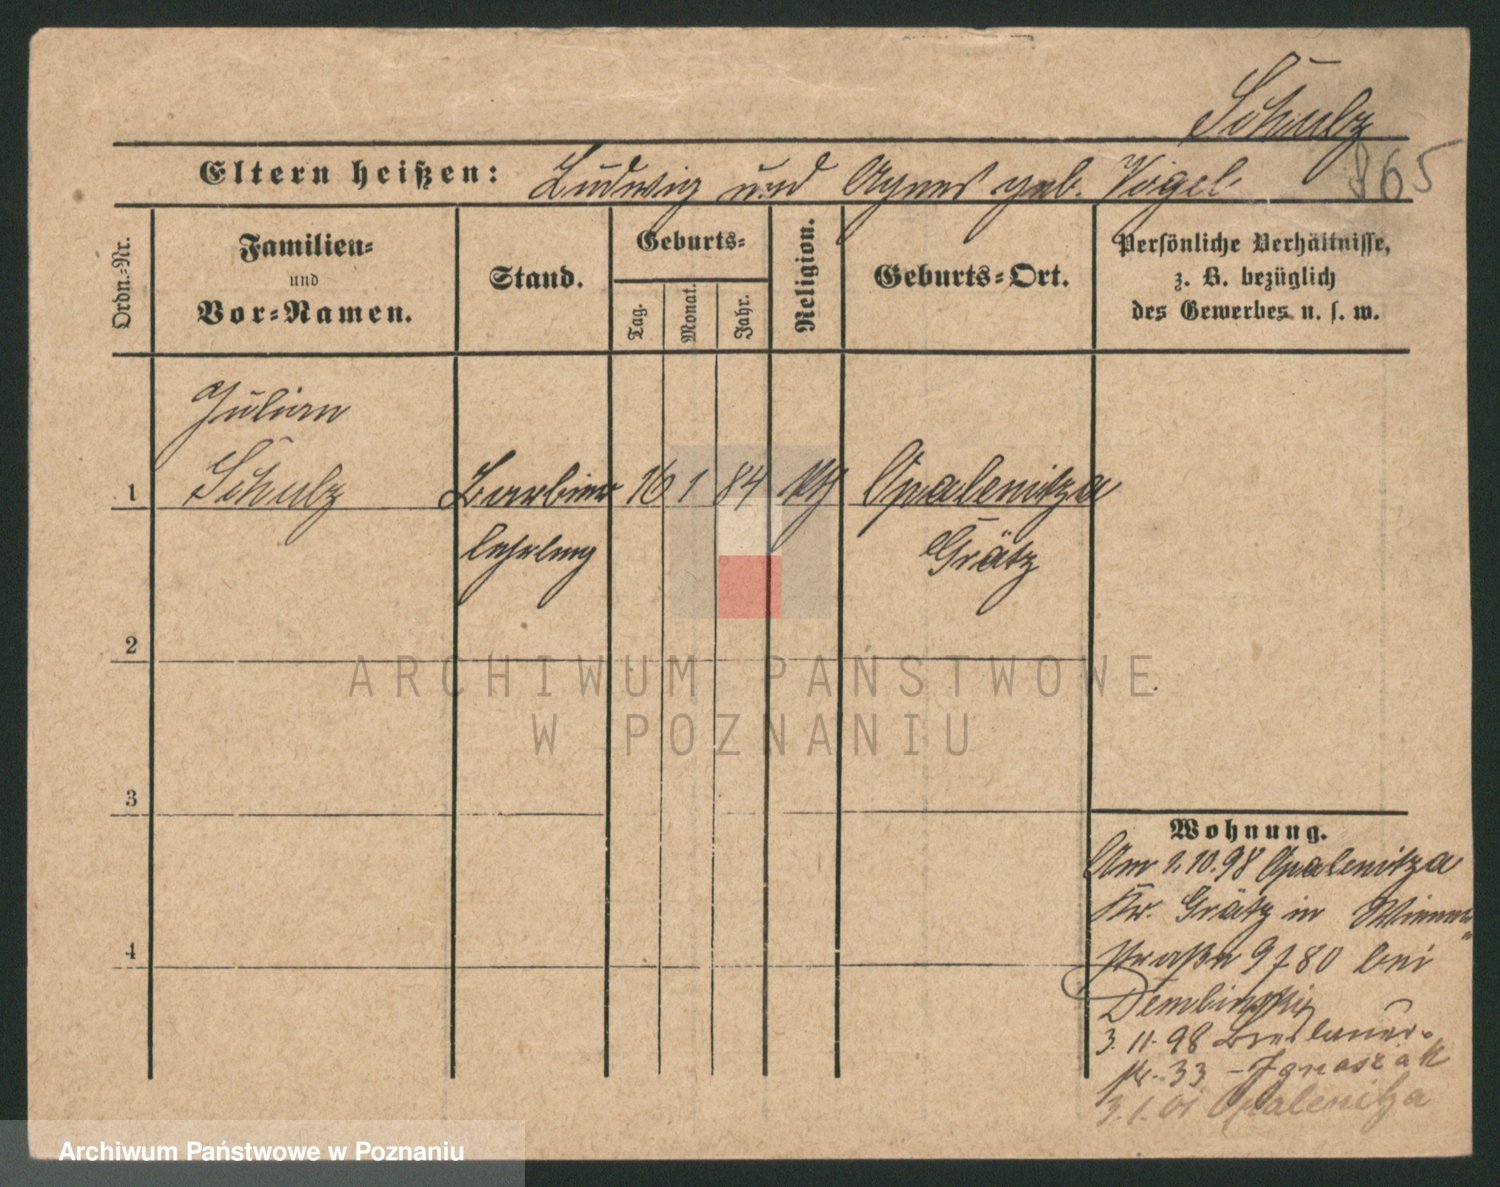 Schulz
865
Eltern heißen: Ludwig und Agnes geb. Vogel
Ordn.-Nr.
Familien-
und
Vor-Namen.
Stand.
Geburts-
Tag.
Monat.
Jahr.
Religion.
Geburts-Ort.
Persönliche Verhältnisse,
z. B. bezüglich
des Gewerbes u. s. w.
Julian
1 Schulz Barbier 16 1 84 kth Opalenitza
lehrling Grätz
2
3
4
Wohnung.
Am 1.10.98 Opalenitza
Kr. Grätz in Wiener-
straße 9 780 bei
Dembinski
3.11.98 Breslauer-
str. 33 - Ignaszak
3.1.01 Opalenitza
ARCHIWUM PAŃSTWOWE
W POZNANIU
Archiwum Państwowe w Poznaniu